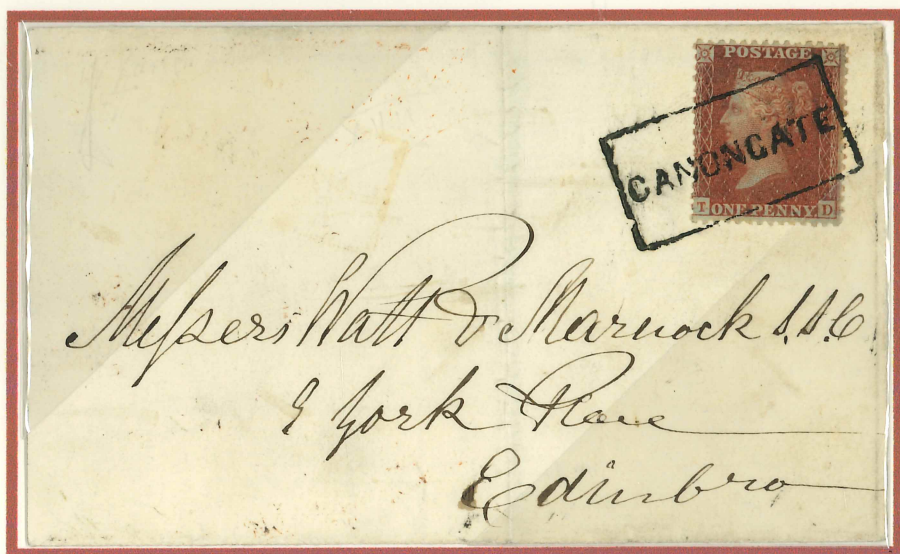 POSTAGE
CANONGATE
T ONE PENNY D
Messers Watt & Marnock S.S.C
9 York Place
Edinbro